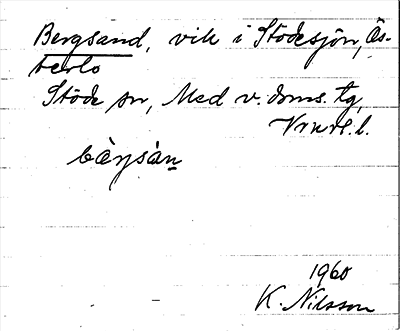 Bergsand, vik i Stödesjön, Ös-
terlo
Stöde sn, Med v. doms. tg,
Vrnrl. l.
bàrjsàn
1960
K. Nilsson